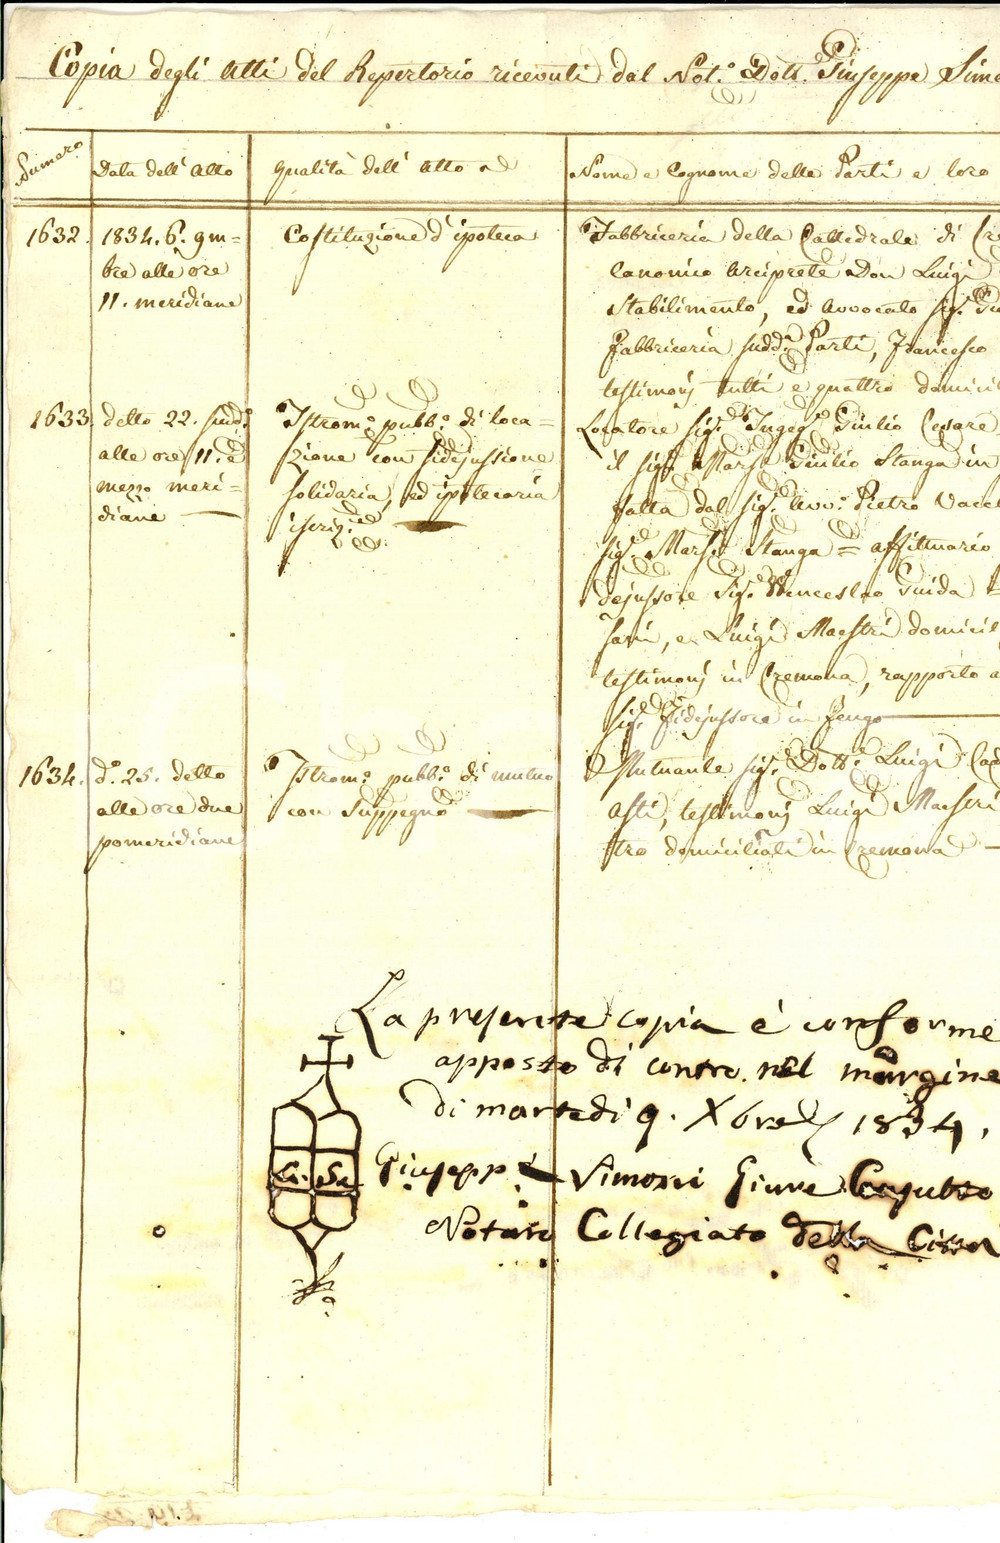 Copia degli Atti del Repertorio ricevuti dal Not.º Dott. Giuseppe Simo
Numero
Data dell'Atto
qualità dell'Atto
Nome e Cognome delle Parti e loro
1632.
1834. 6. 9m=
bre alle ore
11. meridiane
Costituzione d'ipoteca
Fabbriceria della Cattedrale di Cre
Canonico Arciprete Don Luigi
Stabilimento, ed Avvocato Sig.
Fabbriceria sudd.ª Parti, Francesco
testimonj tutti e quattro domicil
1633.
detto 22. sudd.º
alle ore 11. e
mezzo meri=
diane
Istrom.º pubb.º di loca=
zione con fidejussione
solidaria, ed ipotecaria
iscriz.
Locatore Sig. Ingeg. Giulio Cesare
il Sig. March. Giulio Stanga in
fatta dal Sig. Avv.º Pietro Vacc
Sig. March. Stanga = affittuario
dejussore Sig. Venceslao Guida
Sarii, e Luigi Maestri domicil
testimonj in Cremona, rapporto a
Sig. Fidejussore in Fengo
1634.
d.º 25. detto
alle ore due
pomeridiane
Istrom.º pubb.º di mutuo
con suppegno
Mutuante Sig. Dott. Luigi
Asti, testimonj Luigi Maestri
tro domiciliati in Cremona
La presente copia è conforme
apposto di contro nel margine
di martedì 9. Xbre 1834.
Giuseppe Simoni Giure Consulto
Notaro Collegiato della Città